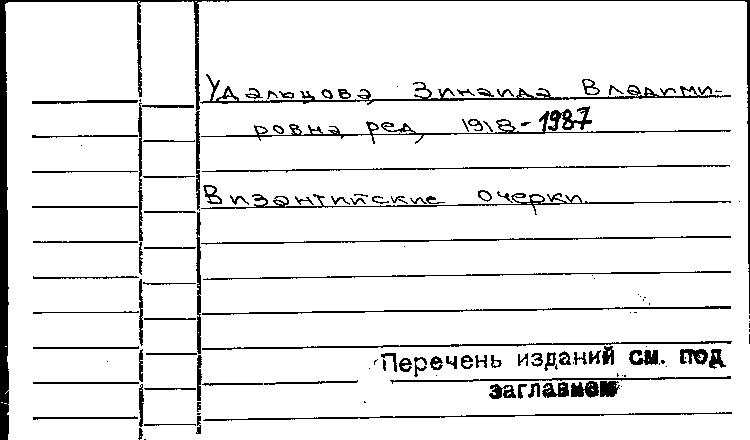 Удальцова, Зинаида Владими-
ровна, ред, 1918-1987
Византийские очерки.
Перечень изданий см. под
заглавием